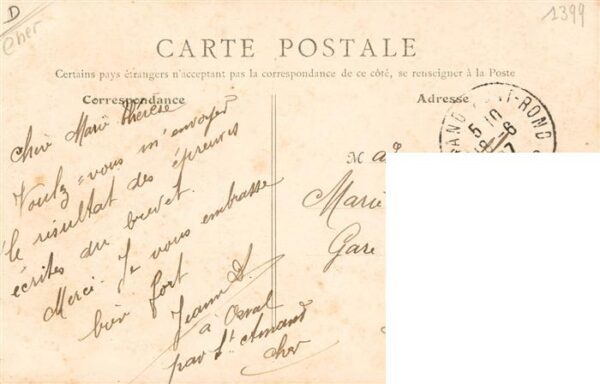 D
Cher
1399
CARTE POSTALE
Certains pays étrangers n'acceptant pas la correspondance de ce côté, se renseigner à la Poste
Correspondance
Chère Marie Thérèse
Voulez-vous m'envoyer
le résultat des épreuves
écrites du brevet.
Merci. Je vous embrasse
bien fort
Jeanne
à Orval
par St Amand
Cher
Adresse
M
Marie
Gare